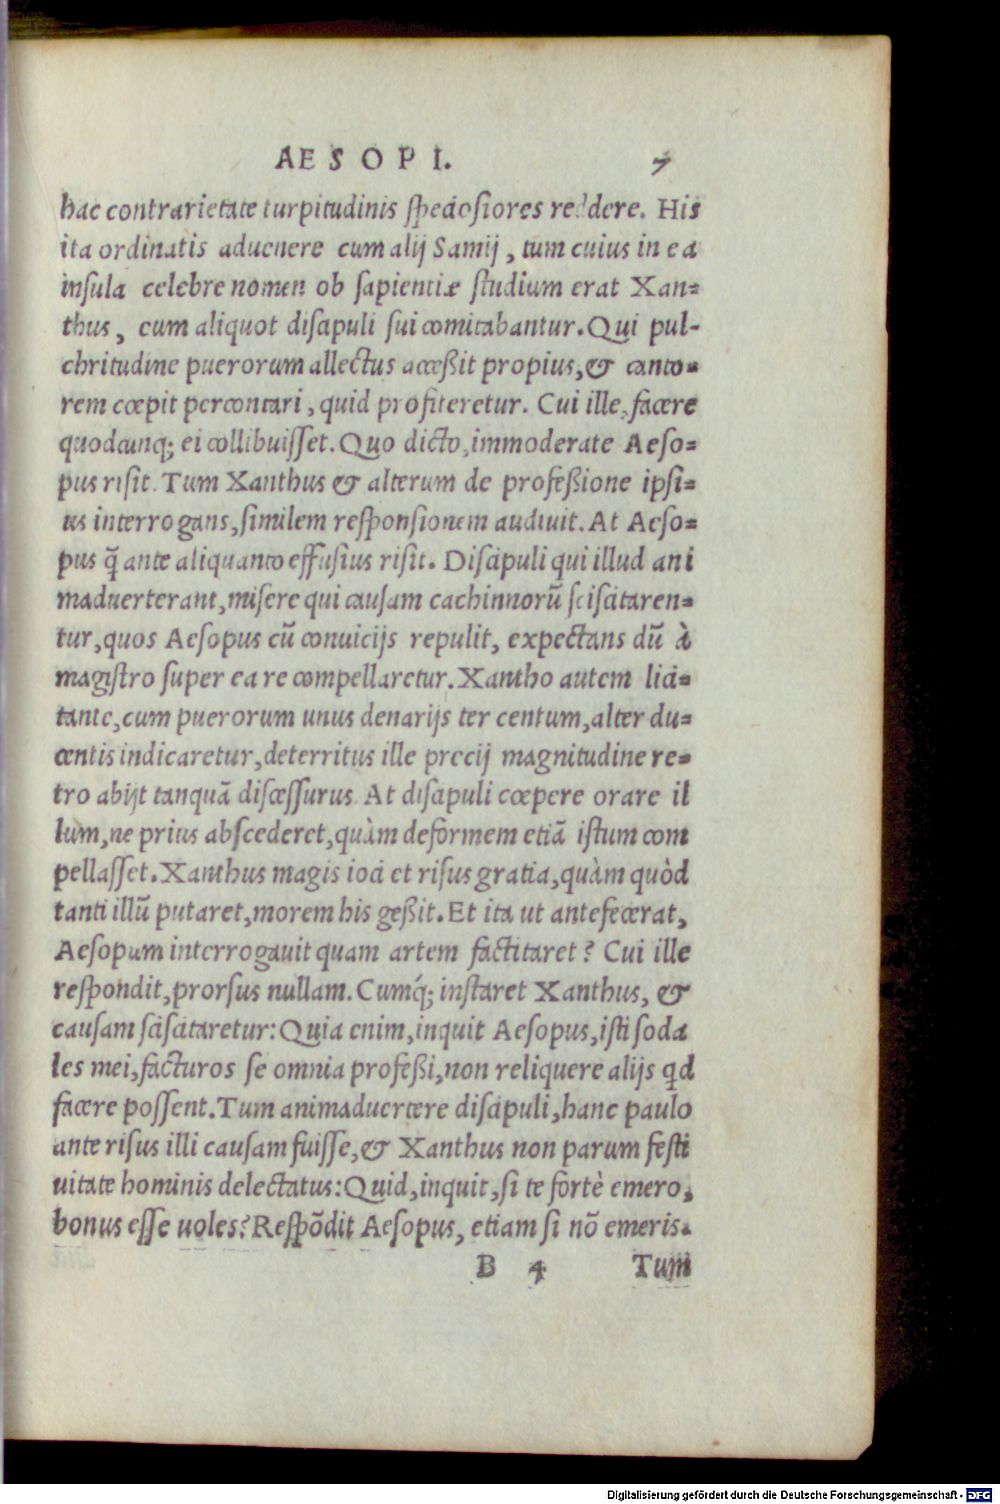 AESOPI. 7
hac contrarietate turpitudinis speciosiores reddere. His
ita ordinatis aduenere cum alij Samij, tum cuius in ea
insula celebre nomen ob sapientiæ studium erat Xan=
thus, cum aliquot discipuli sui comitabantur. Qui pul-
chritudine puerorum allectus acceßit propius, & canto=
rem cœpit percontari, quid profiteretur. Cui ille, facere
quodcunq; ei collibuisset. Quo dicto, immoderate Aeso=
pus risit. Tum Xanthus & alterum de profeßione ipsi=
us interrogans, similem responsionem audiuit. At Aeso=
pus q̃ ante aliquanto effusius risit. Discipuli qui illud ani
maduerterant, misere qui causam cachinnorũ sciscitaren=
tur, quos Aesopus cũ conuicijs repulit, expectans dũ à
magistro super ea re compellaretur. Xantho autem lici=
tante, cum puerorum unus denarijs ter centum, alter du=
centis indicaretur, deterritus ille precij magnitudine re=
tro abijt tanquã discessurus. At discipuli cœpere orare il
lum, ne prius abscederet, quàm deformem etiã istum com
pellasset. Xanthus magis ioci et risus gratia, quàm quòd
tanti illũ putaret, morem his geßit. Et ita ut antefecerat,
Aesopum interrogauit quam artem factitaret? Cui ille
respondit, prorsus nullam. Cumq́; instaret Xanthus, &
causam sciscitaretur: Quia enim, inquit Aesopus, isti soda
les mei, facturos se omnia profeßi, non reliquere alijs qd
facere possent. Tum animaduertere discipuli, hanc paulo
ante risus illi causam fuisse, & Xanthus non parum festi
uitate hominis delectatus: Quid, inquit, si te fortè emero,
bonus esse uoles? Respõdit Aesopus, etiam si nõ emeris.
B 4 Tum
Digitalisierung gefördert durch die Deutsche Forschungsgemeinschaft - DFG